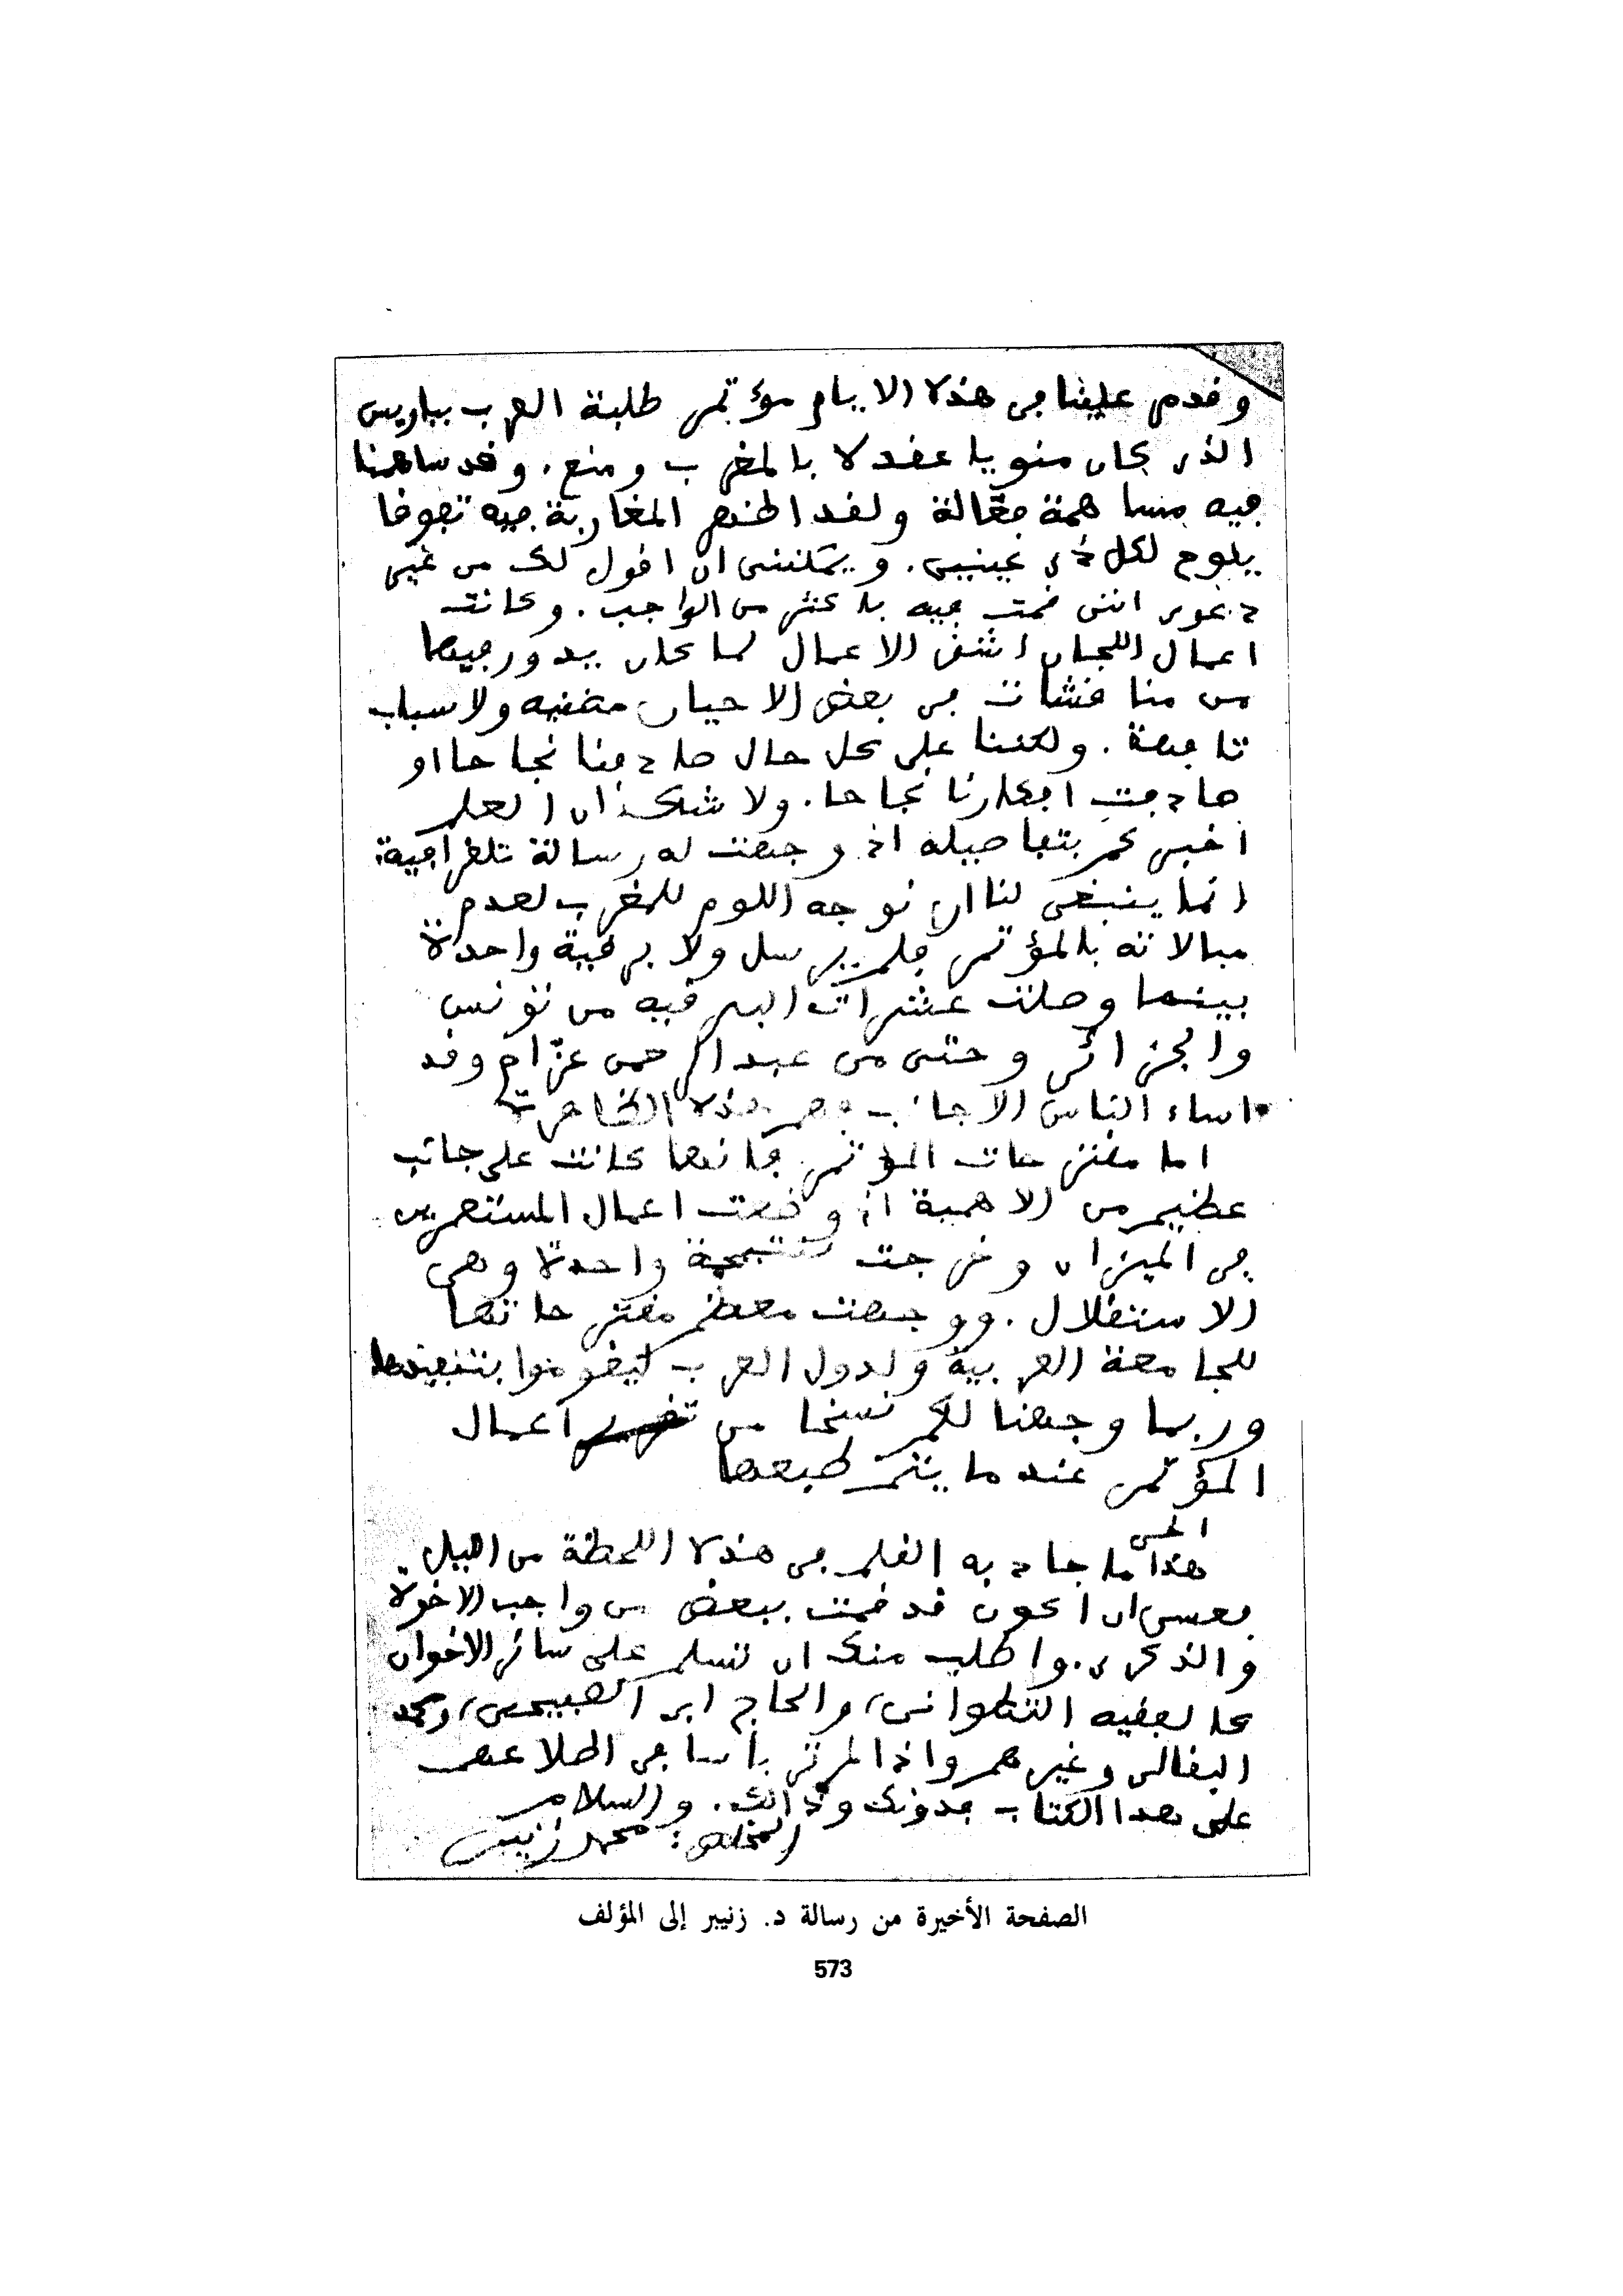 وقدم علينا في هذه الايام مؤتمر طلبة العرب بباريس
الذي كان منويا عقده بالمغرب ومنع. وقد ساهمنا
فيه مساهمة فعّالة ولقد اظهر المغاربة فيه تفوقا
يلوح لكل ذي عينين. ويمكنني ان اقول لك من غير
دعوى انني قمت فيه باكثر من الواجب. وكانت
اعمال اللجان اشق الاعمال لما كان يدور فيها
من مناقشات في بعض الاحيان ولاسباب
تافهة. ولكننا على كل حال صادفنا نجاحا او
صادفت افكارنا نجاحا. ولا شك ان العلم
اخبركم بتفاصيله اذ وجهت له رسالة تلغرافية.
انما ينبغي لنا ان نوجه اللوم للمغرب لعدم
مبالاته بالمؤتمر فلم يرسل ولا برقية واحدة
بينما وصلت عشرات البرقيه من تونس
والجزائر وحتى من عبد الرحمن عزّام وقد
اساء الناس الاجانب هذه الظاهرة
اما مقترحات المؤتمر فانها كانت على جانب
عظيم من الاهمية اذ وضعت اعمال المستعمرين
في الميزان وخرجت بنتيجة واحدة وهي
الاستقلال. ووجهت معظم مقترحاتها
للجامعة العربية ولدول العرب ليقوموا بتنفيذها
وربما وجهنا لكم نسخا من تقرير اعمال
المؤتمر عندما يتم طبعها
اخي
هذا ما جاد به القلم في هذه اللحظة من الليل.
فعسى ان اكون قد قمت ببعض من واجب الاخوة
والذكرى. واطلب منك ان تسلم على سائر الاخوان
كالفقيه التطواني، والحاج ابر الصبيحي، ومحمد
البقالي وغيرهم واذا لم تر باسا في اطلاعهم
على هدا الكتاب فدونك وذالك. والسلام
المخلص: محمد زنيبر
الصفحة الأخيرة من رسالة د. زنيبر إلى المؤلف
573